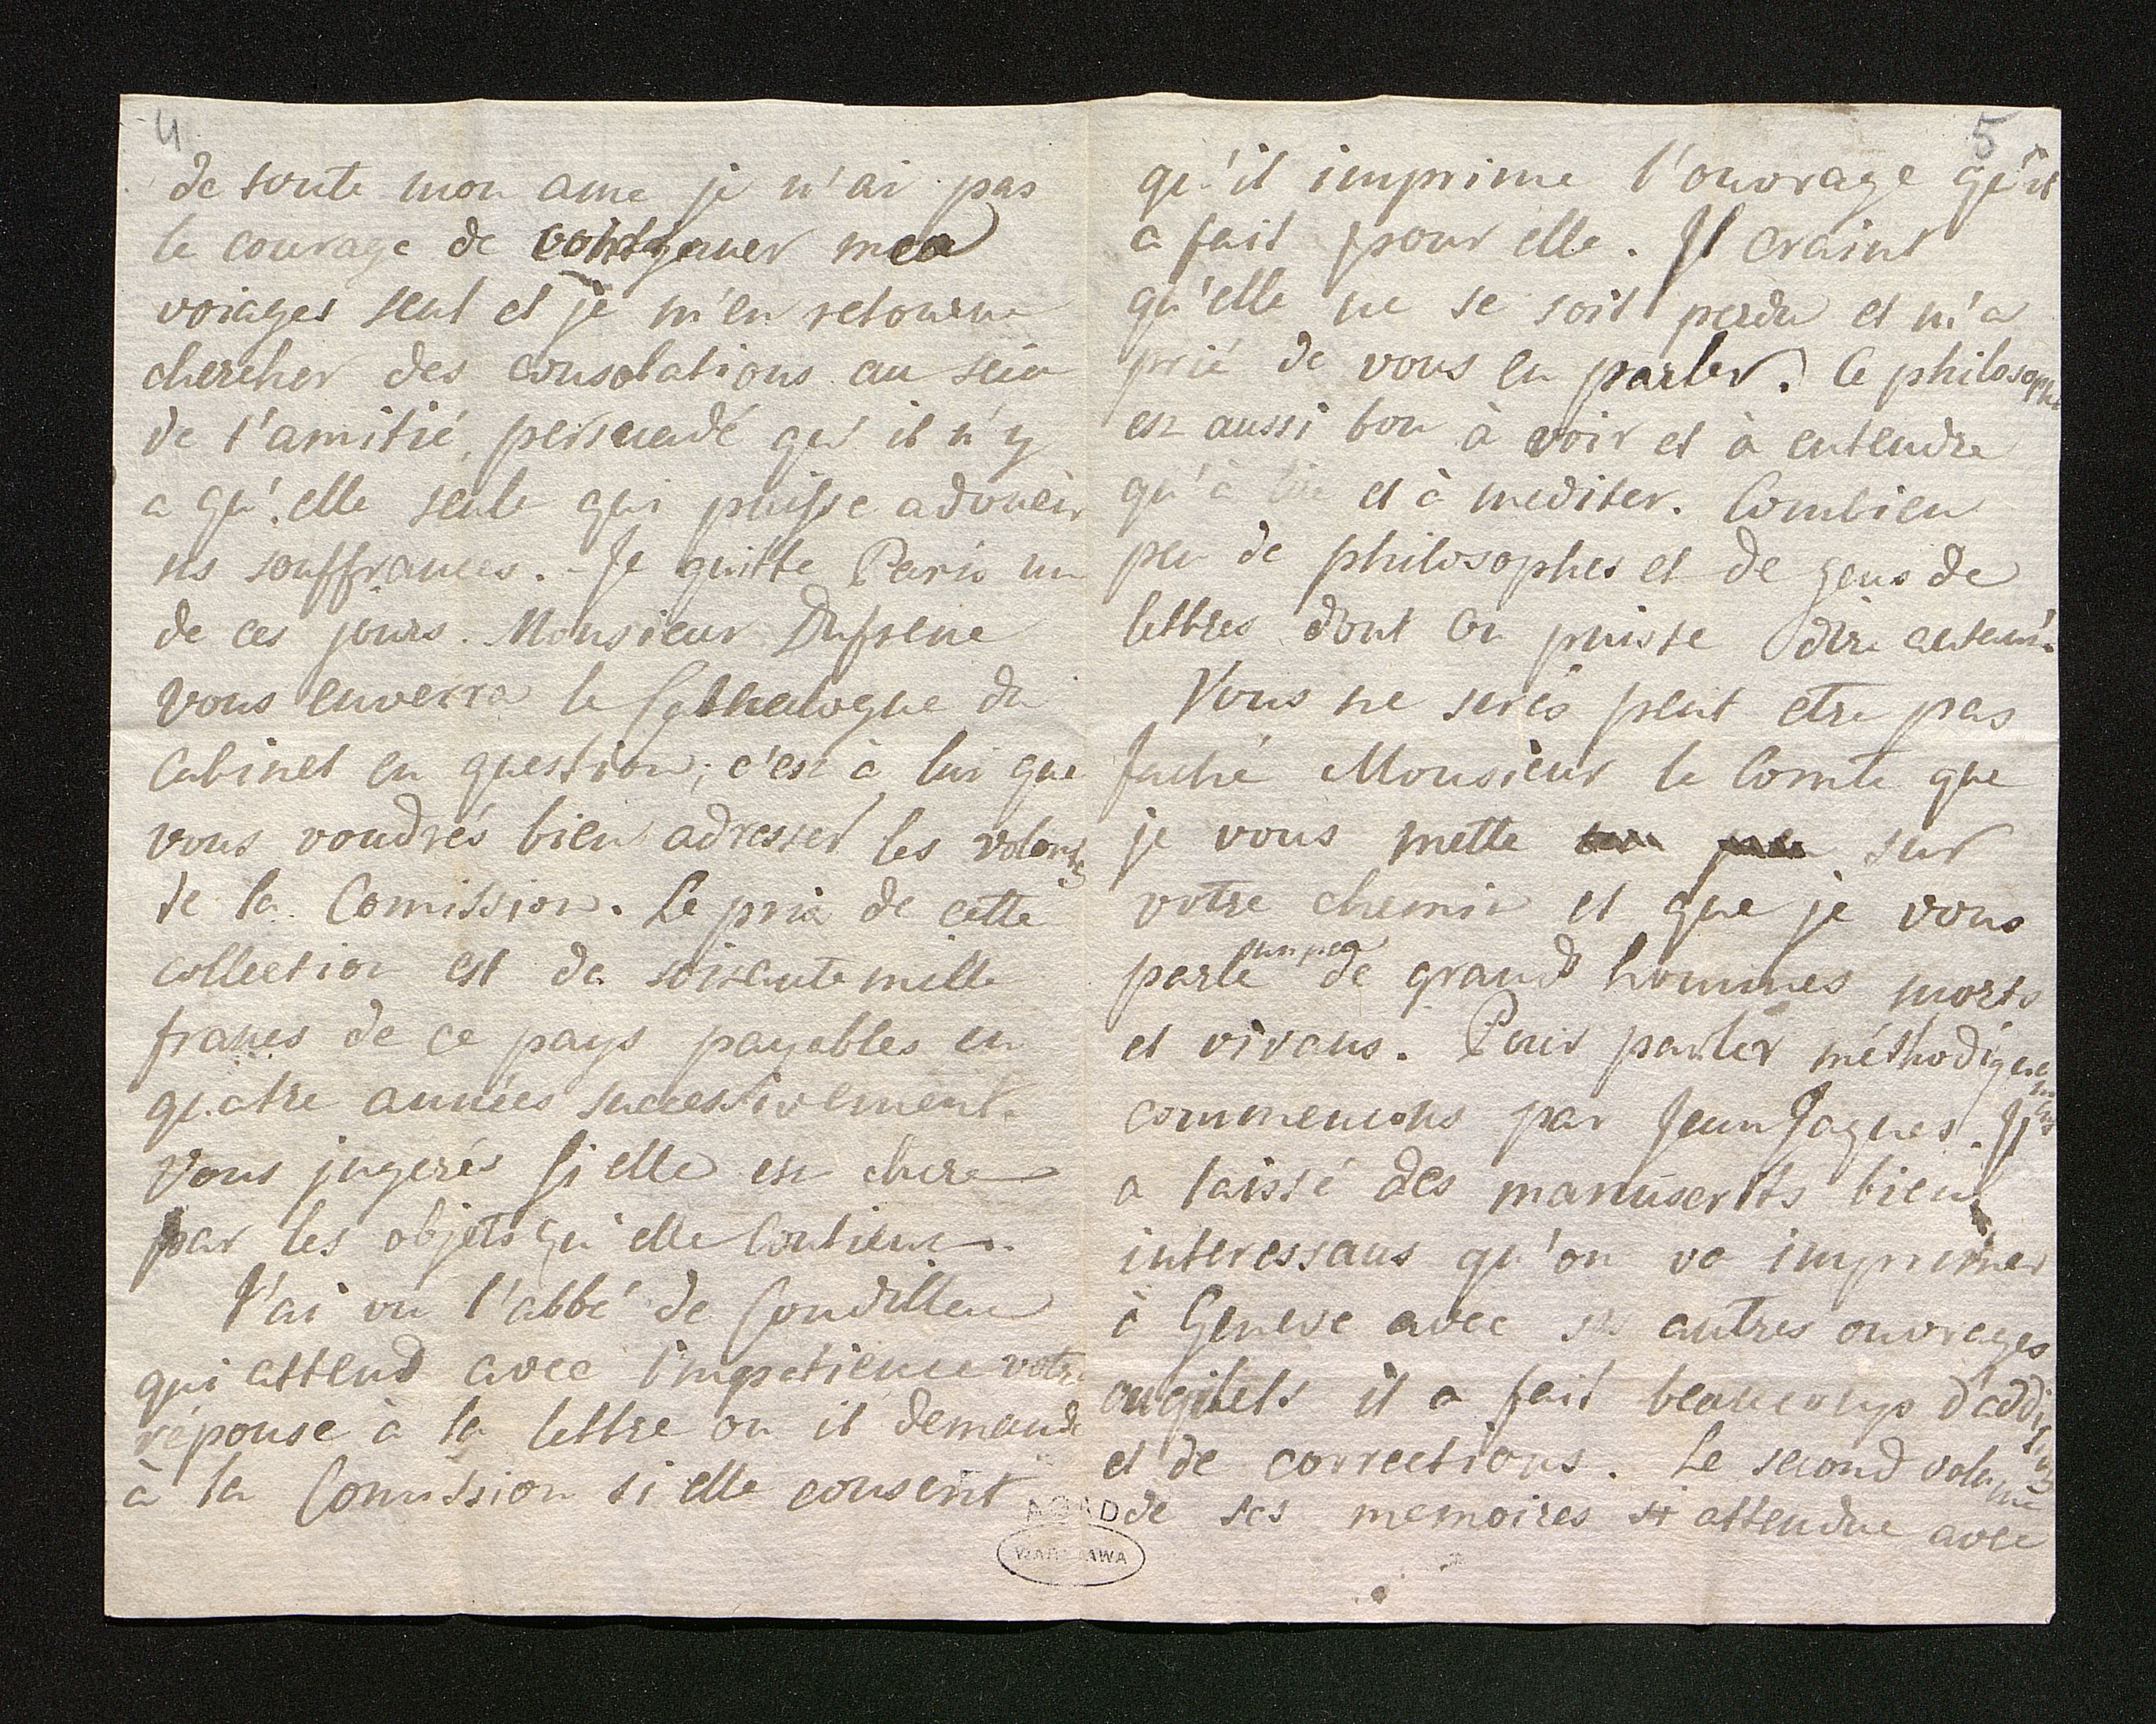 4
de toute mon ame je n'ai pas
le courage de continuer mes
voiages seul et je m'en retourne
chercher des consolations au sein
de l'amitié, persuadé qu'il n'y
a qu'elle seule qui puisse adoucir
les souffrances. - Je quitte Paris un
de ces jours. Monsieur Dufrene
vous enverra le Cathalogue du
cabinet en question; c'est à lui que
vous voudrés bien adresser les volontés
de la Comission. Le prix de cette
collection est de soisente mille
francs de ce pays payables en
quatre années successivement.
Vous jugerés si elle est chere
par les objets qu'elle contient.
J'ai vu l'abbé de Condillac
qui attend avec impatience votre
réponse à la lettre ou il demande
à la Comission si elle consent
5
qu'il imprime l'ouvrage qu'il
a fait pour elle. Il craint
qu'elle ne se soit perdu et m'a
prié de vous en parler. Ce philosophe
est aussi bon à voir et à entendre
qu'à lire et à mediter. Combien
peu de philosophes et de gens de
lettres dont on puisse dire autant.
Vous ne serés peut etre pas
faché Monsieur le Comte que
je vous mette sur
votre chemin et que je vous
parle un peu de grands hommes morts
et vivans. Pour parler méthodiquement
commencons par Jean Jaques. Il
a laissé des manuscrits bien
interessans qu'on va imprimer
à Geneve avec ses autres ouvrages
auquels il a fait beaucoup d'additions
et de corrections. Le second volume
de ses memoires si attendue avec
AGAD
WARSZAWA